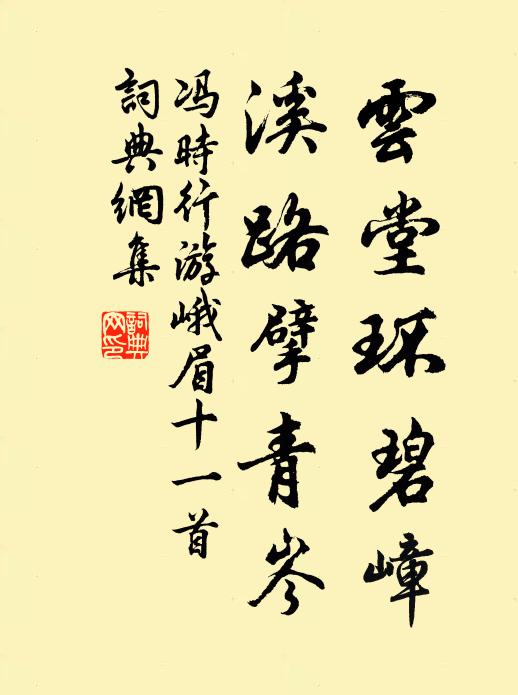 雲堂环碧嶂
溪路擘青岑
冯時行游峨眉十一首
詞典網集
詞典
网印